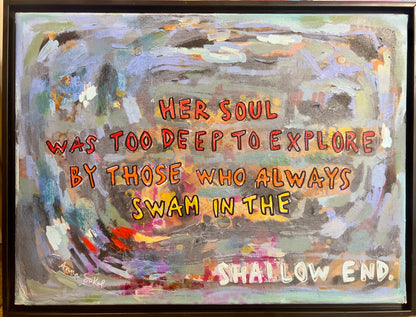 HER SOUL
WAS TOO DEEP TO EXPLORE
BY THOSE WHO ALWAYS
SWAM IN THE
SHALLOW END.